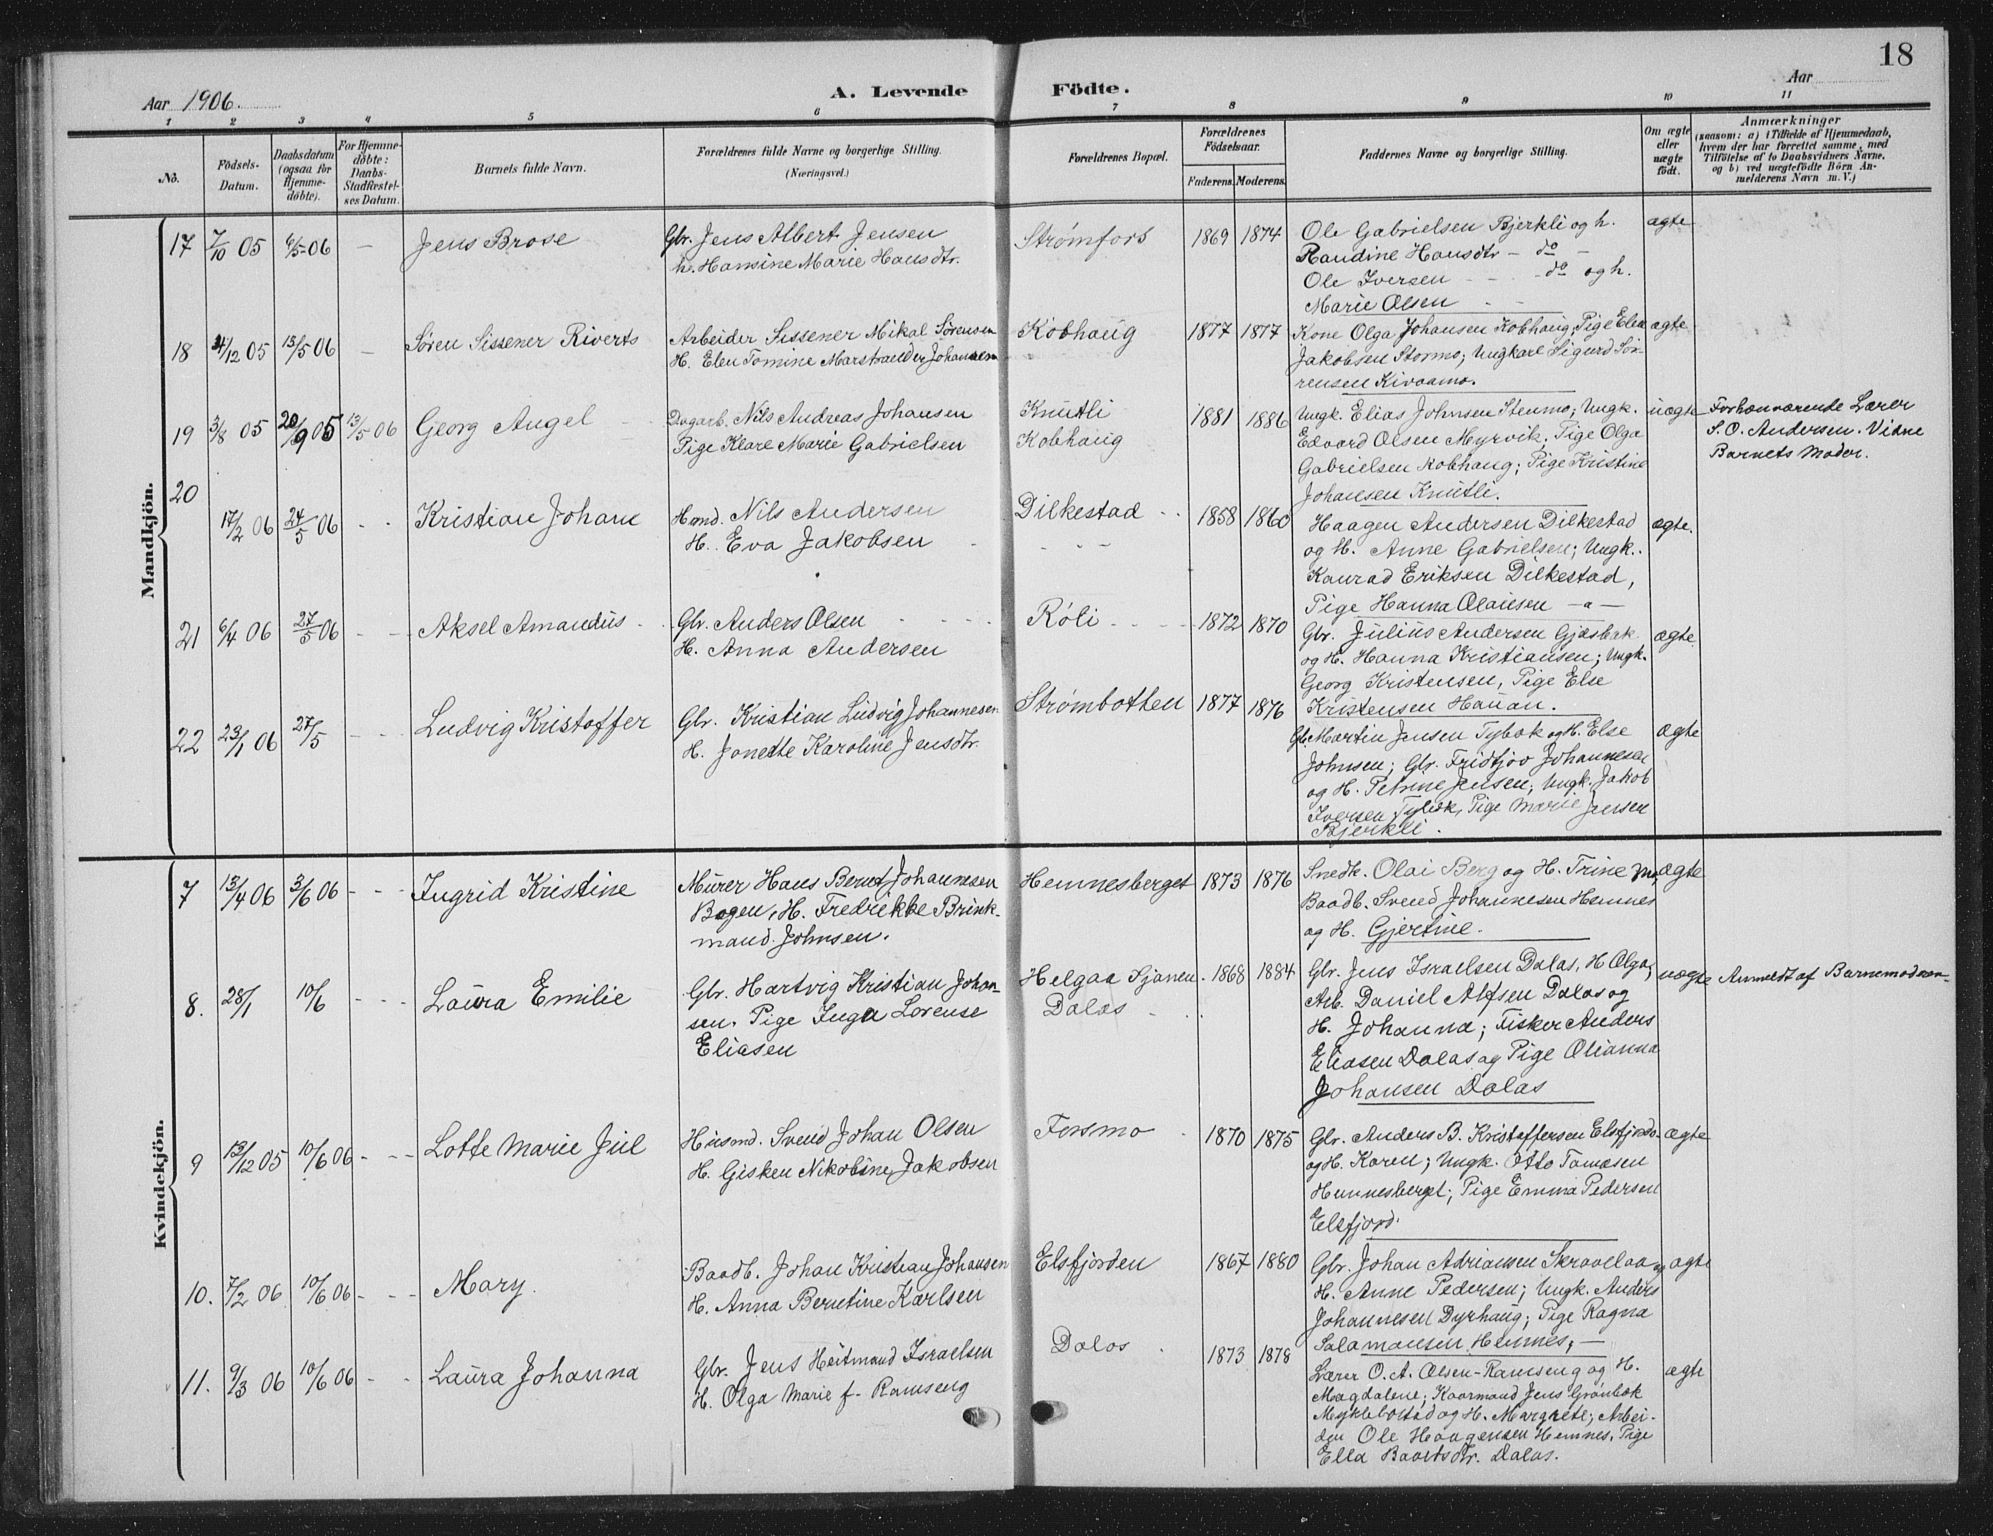 18
Aar 1906.
A. Levende Födte.
Aar
1 2 3 4 5 6 7 8 9 10 11
No.
Födsels-Datum.
Daabsdatum (ogsaa for Hjemme-døbte).
For Hjemme-døbte: Daabs-Stadfæstel-ses Datum.
Barnets fulde Navn.
Forældrenes fulde Navne og borgerlige Stilling.
(Næringsvei.)
Forældrenes Bopæl.
Forældrenes Födselsaar.
Faderens. Moderens.
Faddernes Navne og borgerlige Stilling.
Om ægte eller uægte födt.
Anmærkninger
(saasom: a) i Tilfælde af Hjemmedaab, hvem der har forrettet samme, med Tilföielse af to Daabsvidners Navne, og b) ved uægtefödte Börn An-melderens Navn m. V.)
Mandkjön.
17 7/10 05 6/5-06 - Jens Brose
Gbr. Jens Albert Jensen
h. Hansine Marie Hansdtr.
Strømfors 1869 1874
Ole Gabrielsen Bjerkli og h.
Randine Hansdtr - do -
Ole Iversen - - do og h.
Marie Olsen - -
ægte
18 4/12 05 13/5 06 - Søren Sissener Riverts
Arbeider Sissener Mikal Sørensen
H. Elen Tomine Marstrander Johansen
Kobhaug 1877 1877
Kone Olga Johansen Kobhaug, Pige Elen
Jakobsen Stormo; Ungkarl Sigurd Sör-
rensen Kivaamo.
ægte
19 3/8 05 20/9 05 13/5 06 Georg Angel
Dagarb. Nils Andreas Johansen
Pige Klare Marie Gabrielsen
Knutli
Kobhaug
1881 1886
Ungk. Elias Johnsen Stenmo; Ungk.
Edvard Olsen Myrvik. Pige Olga
Gabrielsen Kobhaug; Pige Kristine
Johansen Knutli.
uægte
Forhenværende Lærer
S. O. Andersen. Vidne
Barnets Moder.
20 17/2 06 24/5 06 - - Kristian Johan
Hmd. Nils Andersen
H. Eva Jakobsen
Dilkestad 1858 1860
Haagen Andersen Dilkestad
og H. Anne Gabrielsen; Ungk.
Konrad Eriksen Dilkestad,
Pige Hanna Olausen -"-
ægte.
21 6/4 06 27/5 06 - - Aksel Amandus
Gbr. Anders Olsen
H. Anna Andersen
Röli 1872 1870
Gbr. Julius Andersen Gjæsbak
og H. Hanna Kristiansen; Ungk.
Georg Kristensen, Pige Else
Kristensen Hauan.
ægte
22 23/1 06 27/5 - - Ludvig Kristoffer
Gbr. Kristian Ludvig Johannesen
H. Jonette Karoline Jensdtr.
Strømbotten 1877 1876
Gbr. Martin Jensen Tybæk og H. Else
Johnsen; Gbr. Fridtjov Johannesen
og H. Petrine Jensen; Ungk. Jakob
Iversen Tybæk, Pige Marie Jensen
Bjerkli.
ægte
Kvindekjön.
7 13/4 06 3/6 06 - - Ingrid Kristine
Murer Hans Bernt Johannesen
Bogen, H. Fredrikke Brink-
mand Johnsen.
Hemnesberget 1873 1876
Snedk. Olai Berg og H. Trine
Baadb. Svend Johannesen Hemnes
og H. Gjertine.
ægte
8. 28/1 10/6 - - - Laura Emilie
Gbr. Hartvig Kristian Johan-
sen. Pige Inga Lorense
Eliasen
Helgaa Sjonen.
Dalas
1868 1884
Gbr. Jens Israelsen Dalas, H Olga,
Arb. Daniel Alfsen Dalas og
H. Johanna; Fisker Anders
Eliasen Dalas og Pige Olianna
Johansen Dalas
uægte
Anmeldt af Barnemoderen
9 13/12 05 10/6 06 - - Lotte Marie Jul
Husmd. Svend Johan Olsen
H. Gjsken Nikobine Jakobsen
Forsmo 1870 1875
Gbr. Anders B. Kristoffersen Elsfjord
og H. Karen; Ungk. Otto Tomasen
Hemnesberget; Pige Emma Pedersen
Elsfjord.
ægte
10. 7/2 06 10/6 06 - - Mary.
Baadb. Johan Kristian Johansen
H. Anna Berntine Karlsen
Elsfjorden 1867 1880
Gbr. Johan Adriansen Skravlaa og
H. Anne Pedersen; Ungk. Anders
Johannesen Dyrhaug; Pige Ragna
Salamonsen Hemnes,
ægte
11. 9/3 06 10/6 06 - - Laura Johanna
Gbr. Jens Heitmand Israelsen
H. Olga Marie f. Ramseng
Dalas 1873 1878
Lærer O. A. Olsen-Ramseng og H.
Magdalene; Kaarmand Jens Grönbæk
Myklebostad og H. Margrete; Arbei-
der Ole Haagensen Hemnes, Pige
Ella Baartsdtr. Dalas.
ægte